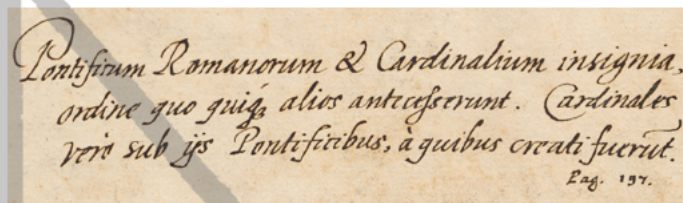 Pontificum Romanorum & Cardinalium insignia,
ordine quo quiq́ꝫ alios antecesserunt. Cardinales
vero sub ijs Pontificibus, à quibus creati fuerūt.
Pag. 197.